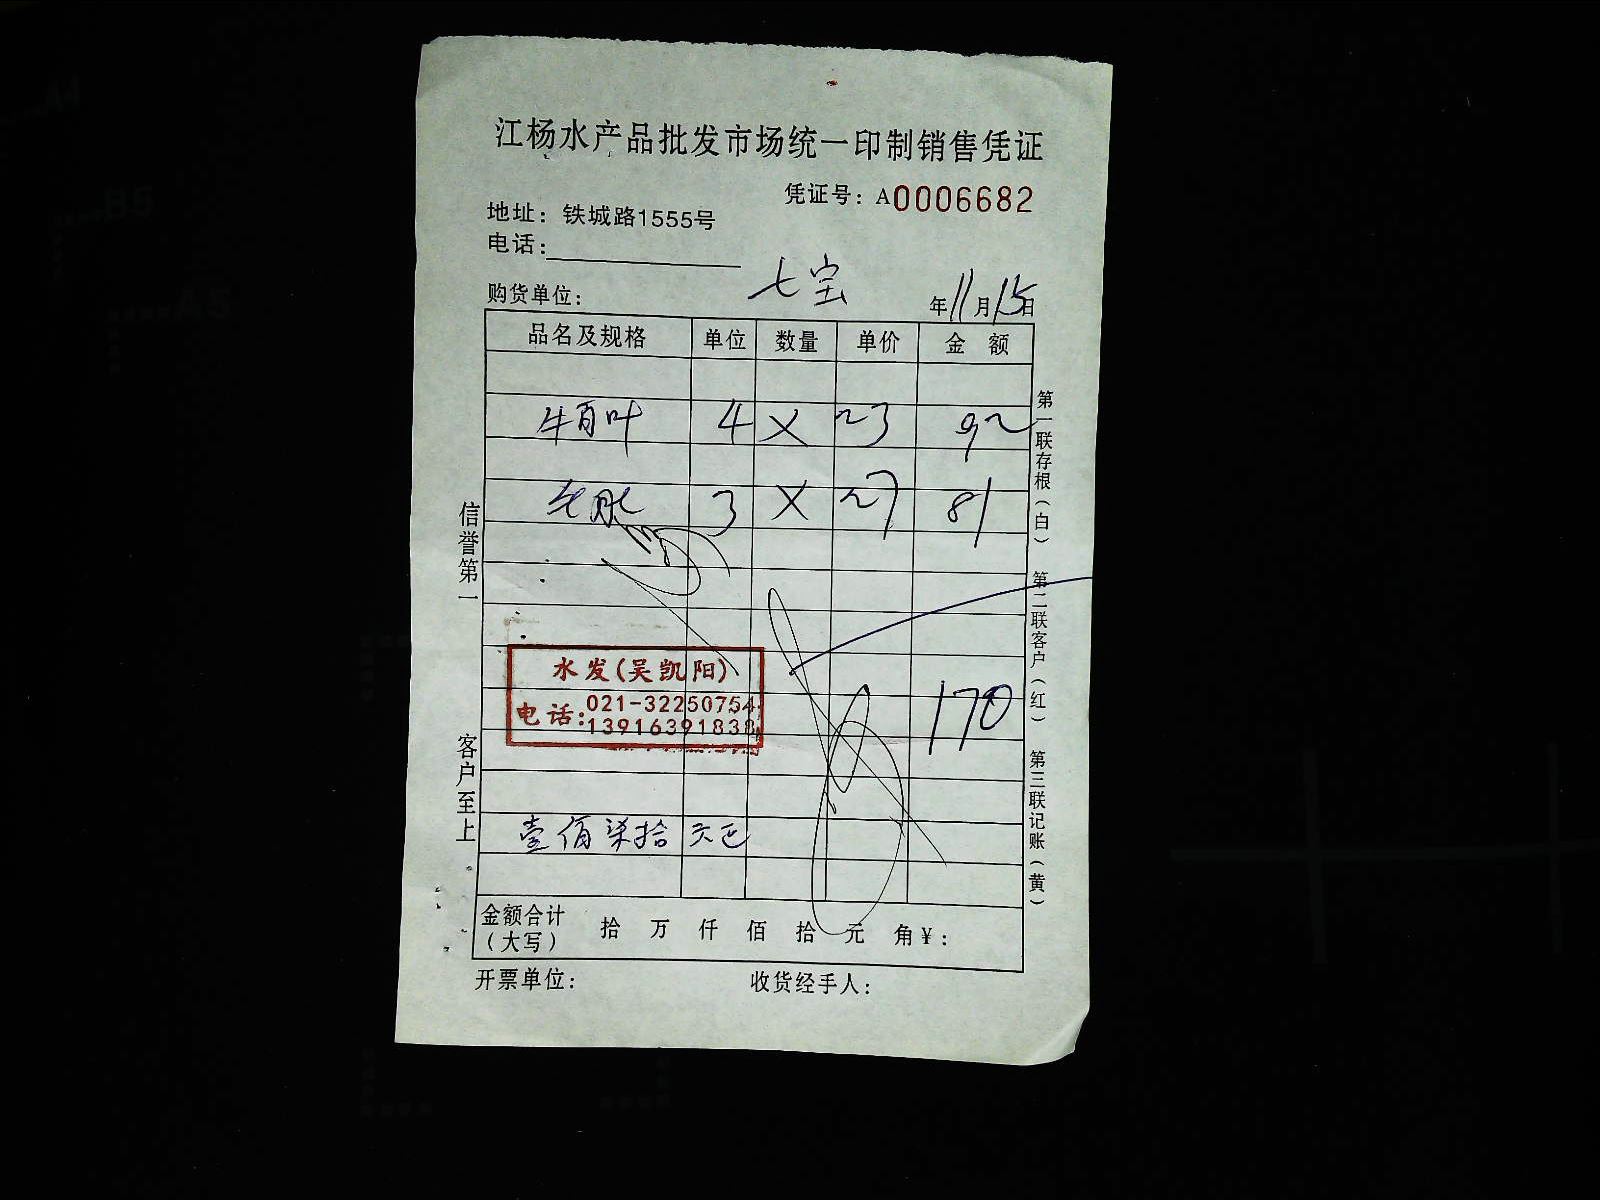 江杨水产品批发市场统一印制销售凭证
凭证号：A0006682
地址：铁城路1555号
电话：
购货单位： 七宝 年11月15日
品名及规格 单位 数量 单价 金额
牛百叶 4 X 23 92
3 X 27 81
170
水发(吴凯阳)
电话：021-32250754
13916391838
壹佰柒拾元正
金额合计（大写） 拾 万 仟 佰 拾 元 角 ¥：
开票单位： 收货经手人：
信誉第一
客户至上
第一联存根（白） 第二联客户（红） 第三联记账（黄）